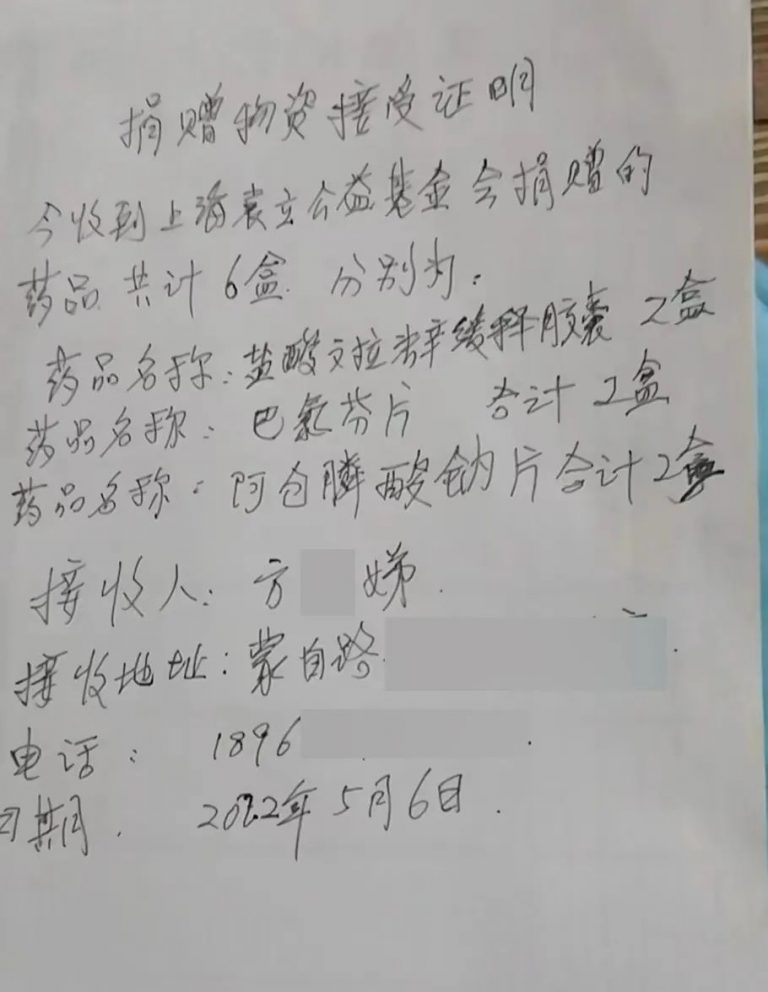 捐赠物资接受证明
今收到上海袁立公益基金会捐赠的
药品共计6盒. 分别为:
药品名称:盐酸文拉法辛缓释胶囊 2盒
药品名称: 巴氯芬片 合计2盒
药品名称: 阿仑膦酸钠片合计2盒
接收人: 方 娣.
接收地址:蒙自路
电话: 1896
日期. 2022年5月6日.